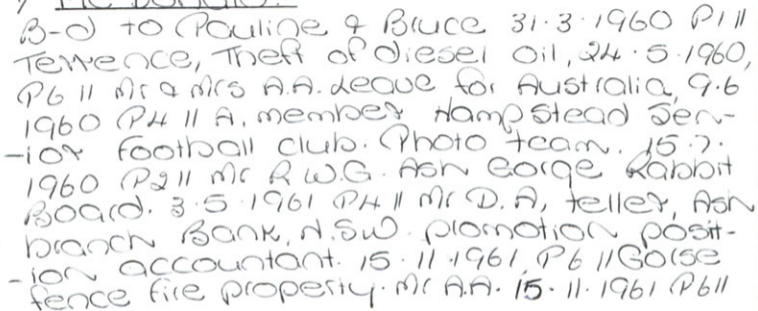 B-d to Pauline & Bruce 31.3.1960 P1 //
Terrence, Theft of diesel oil, 24.5.1960,
P6 // Mr & Mrs A.A. Leave for Australia, 9.6
1960 P4 // A. member Hampstead Sen-
-ior Football club. Photo team. 15.7.
1960 P2 // Mr R.W.G. Ash Gorge Rabbit
Board. 3.5.1961 P4 // Mr D.A, teller, Ash
branch Bank, N.S.W. promotion posit-
-ion accountant. 15.11.1961, P6 // Gorse
fence fire property. Mr A.A. 15.11.1961 P6 //